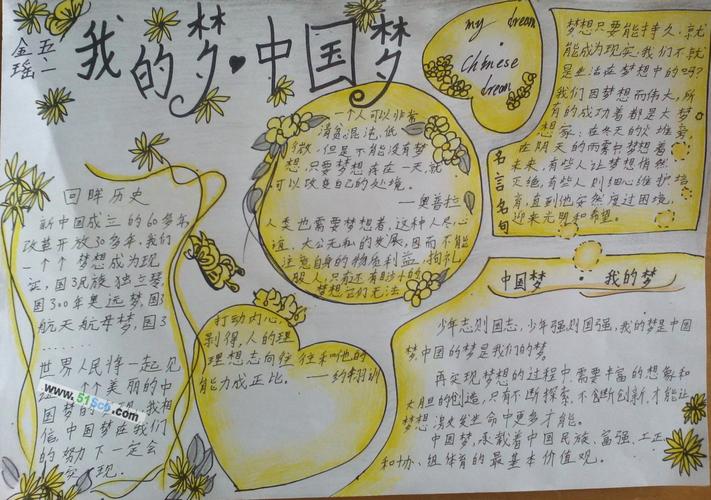 五一
金瑶
我的梦·中国梦
my dream
Chinese
dream
梦想只要能持久,就
能成为现实,我们不就
是生活在梦想中的吗?
我们因梦想而伟大,所
有的成功者都是大梦
想家:在冬天的火堆旁,
在阴天的雨雾中梦想着
未来,有些人让梦想悄然
灭绝,有些人则细心维护培
育,直到他安然度过困境,
迎来光明和希望。
名言名句
一个人可以非常
清贫、混沌、低
微,但是不能没有梦
想,只要梦想存在一天,就
可以改变自己的处境。
——奥普拉
人类也需要梦想着,这种人尽心
谊,大公无私的发展,因而不能
注意自身的物质利益,
回眸历史
新中国成立的60多年
改革开放30多年,我们
一个个梦想成为现
实,国民族独立
国300年奥运梦,国
航天航母梦,国
……
世界人民将一起见
一个美丽的中
国梦的 我相
信,中国梦在我们
的努力下一定会
实现.
www.51Scb.com
打动内心
人的理
理想志向往往和他的
能力成正比。——约翰逊
中国梦·我的梦
少年志则国志,少年强则国强,我的梦是中国
梦,中国的梦是我们的梦.
再实现梦想的过程中,需要丰富的想象和
大胆的创造,只有不断探索,不断创新,才能让
梦想 发生命中更多才能。
中国梦,承载着中国民族、富强、工正
和协、组体育的最基本价值观。